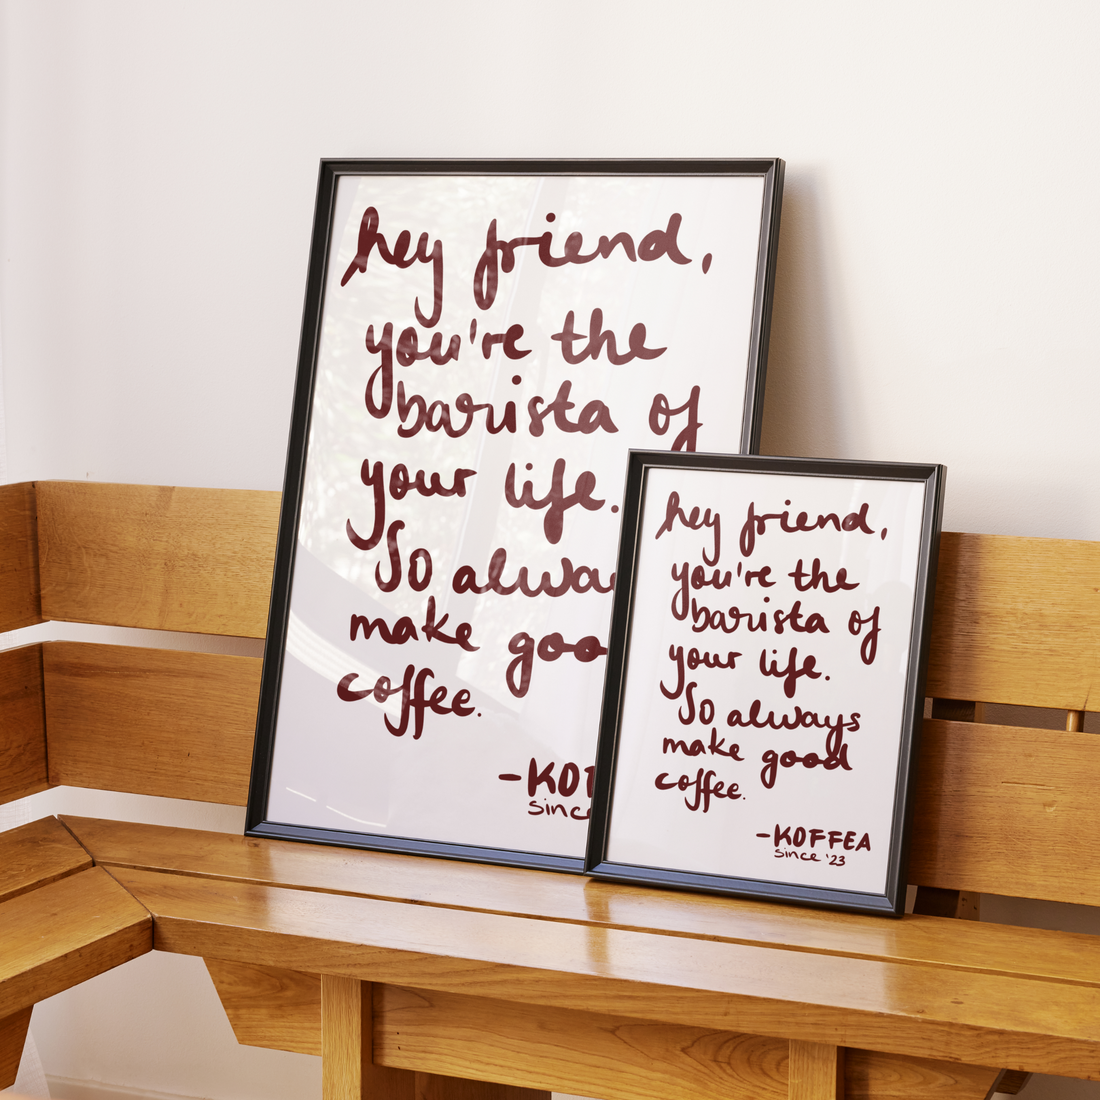 hey friend,
you're the
barista of
your life.
So alwa
make goo
coffee.
-KOF
since
hey friend,
you're the
barista of
your life.
So always
make good
coffee.
-KOFFEA
since '23